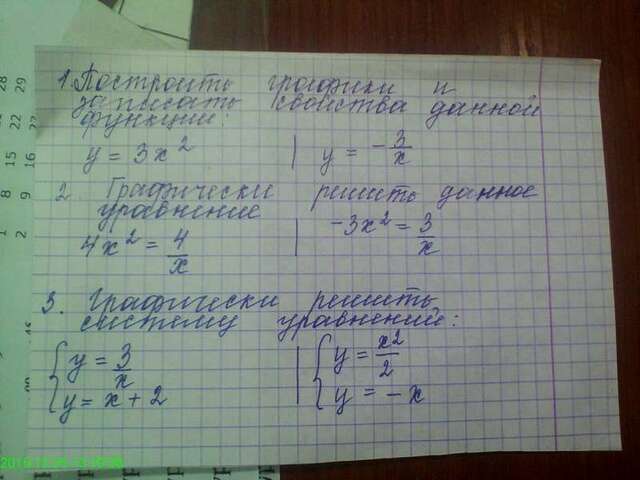 1. Построить графики и
записать свойства данной
функции:
y = 3x² | y = -3/x
2. Графически решить данное
уравнение
4x² = 4/x | -3x² = 3/x
3. Графически решить
систему уравнений:
{ y = 3/x | { y = x²/2
{ y = x + 2 | { y = -x
28
29
15 22
16 22
1 8
2 9